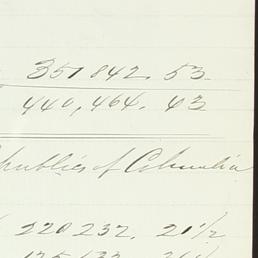 351 842. 53
440,464. 43
publics of Columbia
220 232. 21 1/2